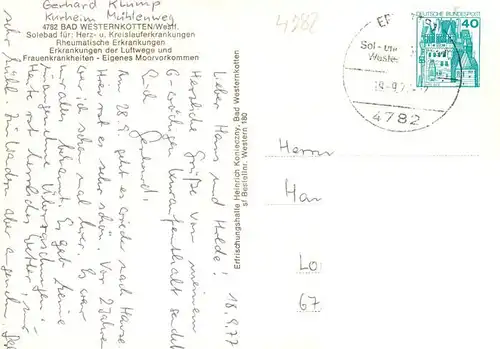 Gerhard Klump
Kurheim Mühlenweg
4782 BAD WESTERNKOTTEN/Westf.
Solebad für: Herz- u. Kreislauferkrankungen
Rheumatische Erkrankungen
Erkrankungen der Luftwege und
Frauenkrankheiten - Eigenes Moorvorkommen
18.9.77
Lieber Hans und Hulde!
Herzliche Grüße von meinem
6-wöchigen Kuraufenthalt sendet
Euch Gerhard!
Am 28.9. geht es wieder nach Hause
Hier ist es sehr schön. Vor 2 Jahren
war ich schon mal hier. Es war
mir alles bekannt. Es gab keine
unangenehme Überraschungen.
Heute ist herrliches Wetter, nur
sehr kühl. Zu baden aber
Erfrischungshalle Heinrich Konieczny, Bad Westernkotten
sf Bestellnr. Western 180
4782
DEUTSCHE BUNDESPOST
40
Sol- und
4782
Herrn
Han
Lo
67